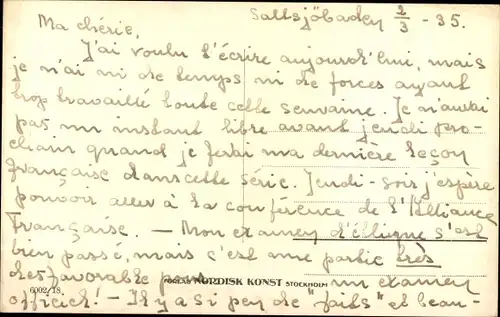 Saltsjöbaden 2/3 - 35.
Ma chérie,
J'ai voulu t'écrire aujourd'hui, mais
je n'ai ni de temps ni de forces ayant
trop travaillé toute cette semaine. Je n'aurai
pas un instant libre avant jeudi pro-
chain quand je ferai ma dernière leçon
française dans cette série. Jeudi-soir j'espère
pouvoir aller à la conférence de l'Alliance
Française. — Mon examen s'est
bien passé, mais c'est une partie très
défavorable pour un examen
officiel! — Il y a si peu de "faits" et beau-
FÖRLAG NORDISK KONST STOCKHOLM
6002/18